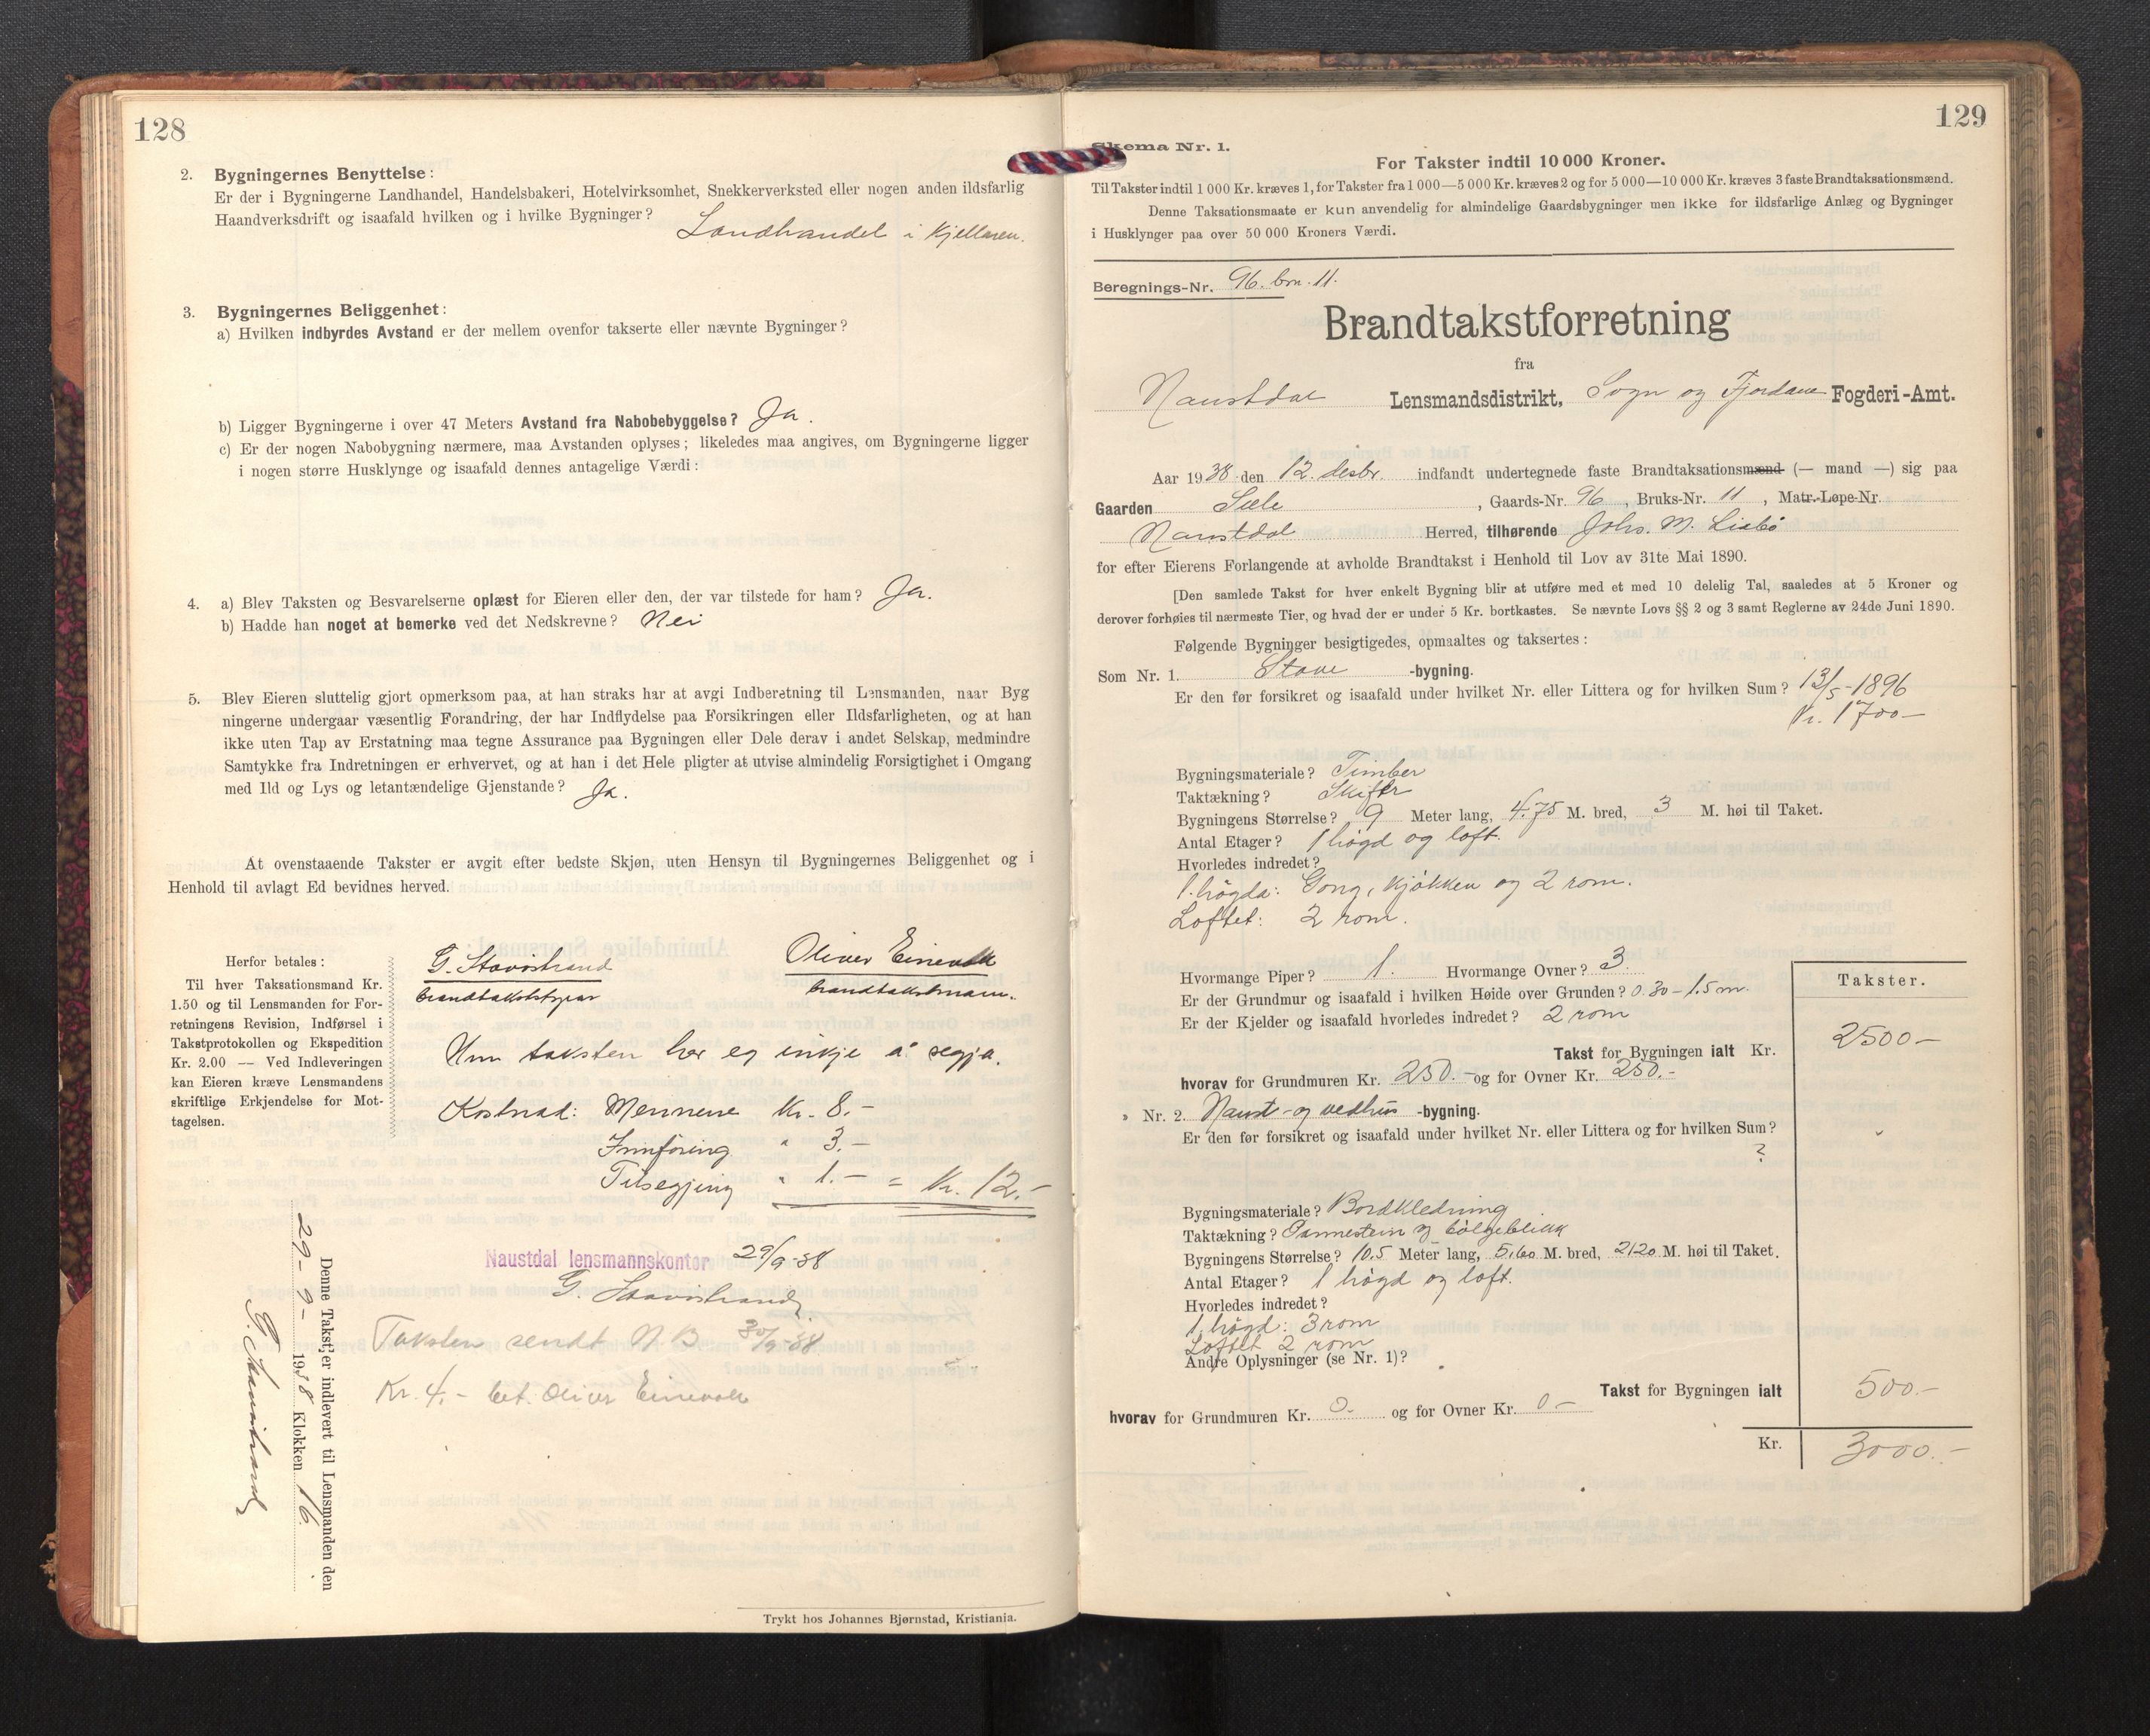 128
2. Bygningernes Benyttelse:
Er der i Bygningerne Landhandel, Handelsbakeri, Hotelvirksomhet, Snekkerverksted eller nogen anden ildsfarlig
Haandverksdrift og isaafald hvilken og i hvilke Bygninger?
Landhandel i kjellaren.
3. Bygningernes Beliggenhet:
a) Hvilken indbyrdes Avstand er der mellem ovenfor takserte eller nævnte Bygninger?
b) Ligger Bygningerne i over 47 Meters Avstand fra Nabobebyggelse? Ja.
c) Er der nogen Nabobygning nærmere, maa Avstanden oplyses; likeledes maa angives, om Bygningerne ligger
i nogen større Husklynge og isaafald dennes antagelige Værdi:
4. a) Blev Taksten og Besvarelserne oplæst for Eieren eller den, der var tilstede for ham? Ja.
b) Hadde han noget at bemerke ved det Nedskrevne? Nei
5. Blev Eieren sluttelig gjort opmerksom paa, at han straks har at avgi Indberetning til Lensmanden, naar Byg
ningerne undergaar væsentlig Forandring, der har Indflydelse paa Forsikringen eller Ildsfarligheten, og at han
ikke uten Tap av Erstatning maa tegne Assurance paa Bygningen eller Dele derav i andet Selskap, medmindre
Samtykke fra Indretningen er erhvervet, og at han i det Hele pligter at utvise almindelig Forsigtighet i Omgang
med Ild og Lys og letantændelige Gjenstande? Ja.
At ovenstaaende Takster er avgit efter bedste Skjøn, uten Hensyn til Bygningernes Beliggenhet og i
Henhold til avlagt Ed bevidnes herved.
Herfor betales:
Til hver Taksationsmand Kr.
1.50 og til Lensmanden for For-
retningens Revision, Indførsel i
Takstprotokollen og Ekspedition
Kr. 2.00 — Ved Indleveringen
kan Eieren kræve Lensmandens
skriftlige Erkjendelse for Mot-
tagelsen.
G. Stavøstrand Oliver Einevoll
brandtakststyrar brandtakstmann.
Um taksten har eg inkje å segja.
Kostnad: Mennene Kr. 8.-
Innføring " 3.-
Tilsegjing " 1.- = Kr. 12.-
Naustdal lensmannskontor 29/9-38
G. Stavøstrand
Taksten sendt N.B 30/9-38
Kr. 4.- bet. Oliver Einevoll
Denne Takst er indlevert til Lensmanden den
29-9- 1938 Klokken 16
G. Stavøstrand
Trykt hos Johannes Bjørnstad, Kristiania.
129
Skema Nr. 1.
For Takster indtil 10 000 Kroner.
Til Takster indtil 1 000 Kr. kræves 1, for Takster fra 1 000—5 000 Kr. kræves 2 og for 5 000—10 000 Kr. kræves 3 faste Brandtaksationsmænd.
Denne Taksationsmaate er kun anvendelig for almindelige Gaardsbygninger men ikke for ildsfarlige Anlæg og Bygninger
i Husklynger paa over 50 000 Kroners Værdi.
Beregnings-Nr. 96. brn. 11.
Brandtakstforretning
fra
Naustdal Lensmandsdistrikt, Sogn og Fjordane Fogderi-Amt.
Aar 1938 den 12. desbr. indfandt undertegnede faste Brandtaksationsmænd (— mand —) sig paa
Gaarden Sæle, Gaards-Nr. 96, Bruks-Nr. 11, Matr.-Løpe-Nr.
Naustdal Herred, tilhørende Johs. M. Liabø
for efter Eierens Forlangende at avholde Brandtakst i Henhold til Lov av 31te Mai 1890.
[Den samlede Takst for hver enkelt Bygning blir at utføre med et med 10 delelig Tal, saaledes at 5 Kroner og
derover forhøies til nærmeste Tier, og hvad der er under 5 Kr. bortkastes. Se nævnte Lovs §§ 2 og 3 samt Reglerne av 24de Juni 1890.
Følgende Bygninger besigtigedes, opmaaltes og taksertes:
Som Nr. 1. Stove -bygning.
Er den før forsikret og isaafald under hvilket Nr. eller Littera og for hvilken Sum? 13/5-1896
Kr. 1700-
Bygningsmateriale? Timber
Taktækning? Skifer
Bygningens Størrelse? 9 Meter lang, 4.75 M. bred, 3 M. høi til Taket.
Antal Etager? 1 høgd og loft.
Hvorledes indredet?
1. høgda: Gong, kjøkken og 2 rom.
Loftet: 2 rom.
Hvormange Piper? 1. Hvormange Ovner? 3.
Er der Grundmur og isaafald i hvilken Høide over Grunden? 0.30-1.5 m.
Er der Kjelder og isaafald hvorledes indredet? 2 rom
Takster.
Takst for Bygningen ialt Kr. 2500-
hvorav for Grundmuren Kr. 250.- og for Ovner Kr. 250.-
» Nr. 2. Naust- og vedhus -bygning.
Er den før forsikret og isaafald under hvilket Nr. eller Littera og for hvilken Sum?
?
Bygningsmateriale? Bordkledning
Taktækning? Pannestein og bølgeblikk
Bygningens Størrelse? 10.5 Meter lang, 5,60 M. bred, 2,20 M. høi til Taket.
Antal Etager? 1 høgd og loft.
Hvorledes indredet?
1. høgd: 3 rom
Loftet 2 rom
Andre Oplysninger (se Nr. 1)?
Takst for Bygningen ialt 500.-
hvorav for Grundmuren Kr. 0.- og for Ovner Kr. 0-
Kr. 3000.-